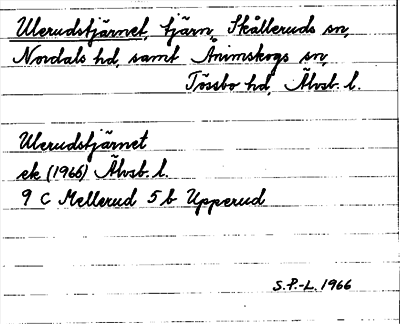 Ulerudstjärnet, tjärn, Skålleruds sn,
Nordals hd, samt Ånimskogs sn,
Tössbo hd, Älvsb. l.
Ulerudstjärnet
ek (1966) Älvsb. l.
9 C Mellerud 5 b Upperud
S.P.-L. 1966